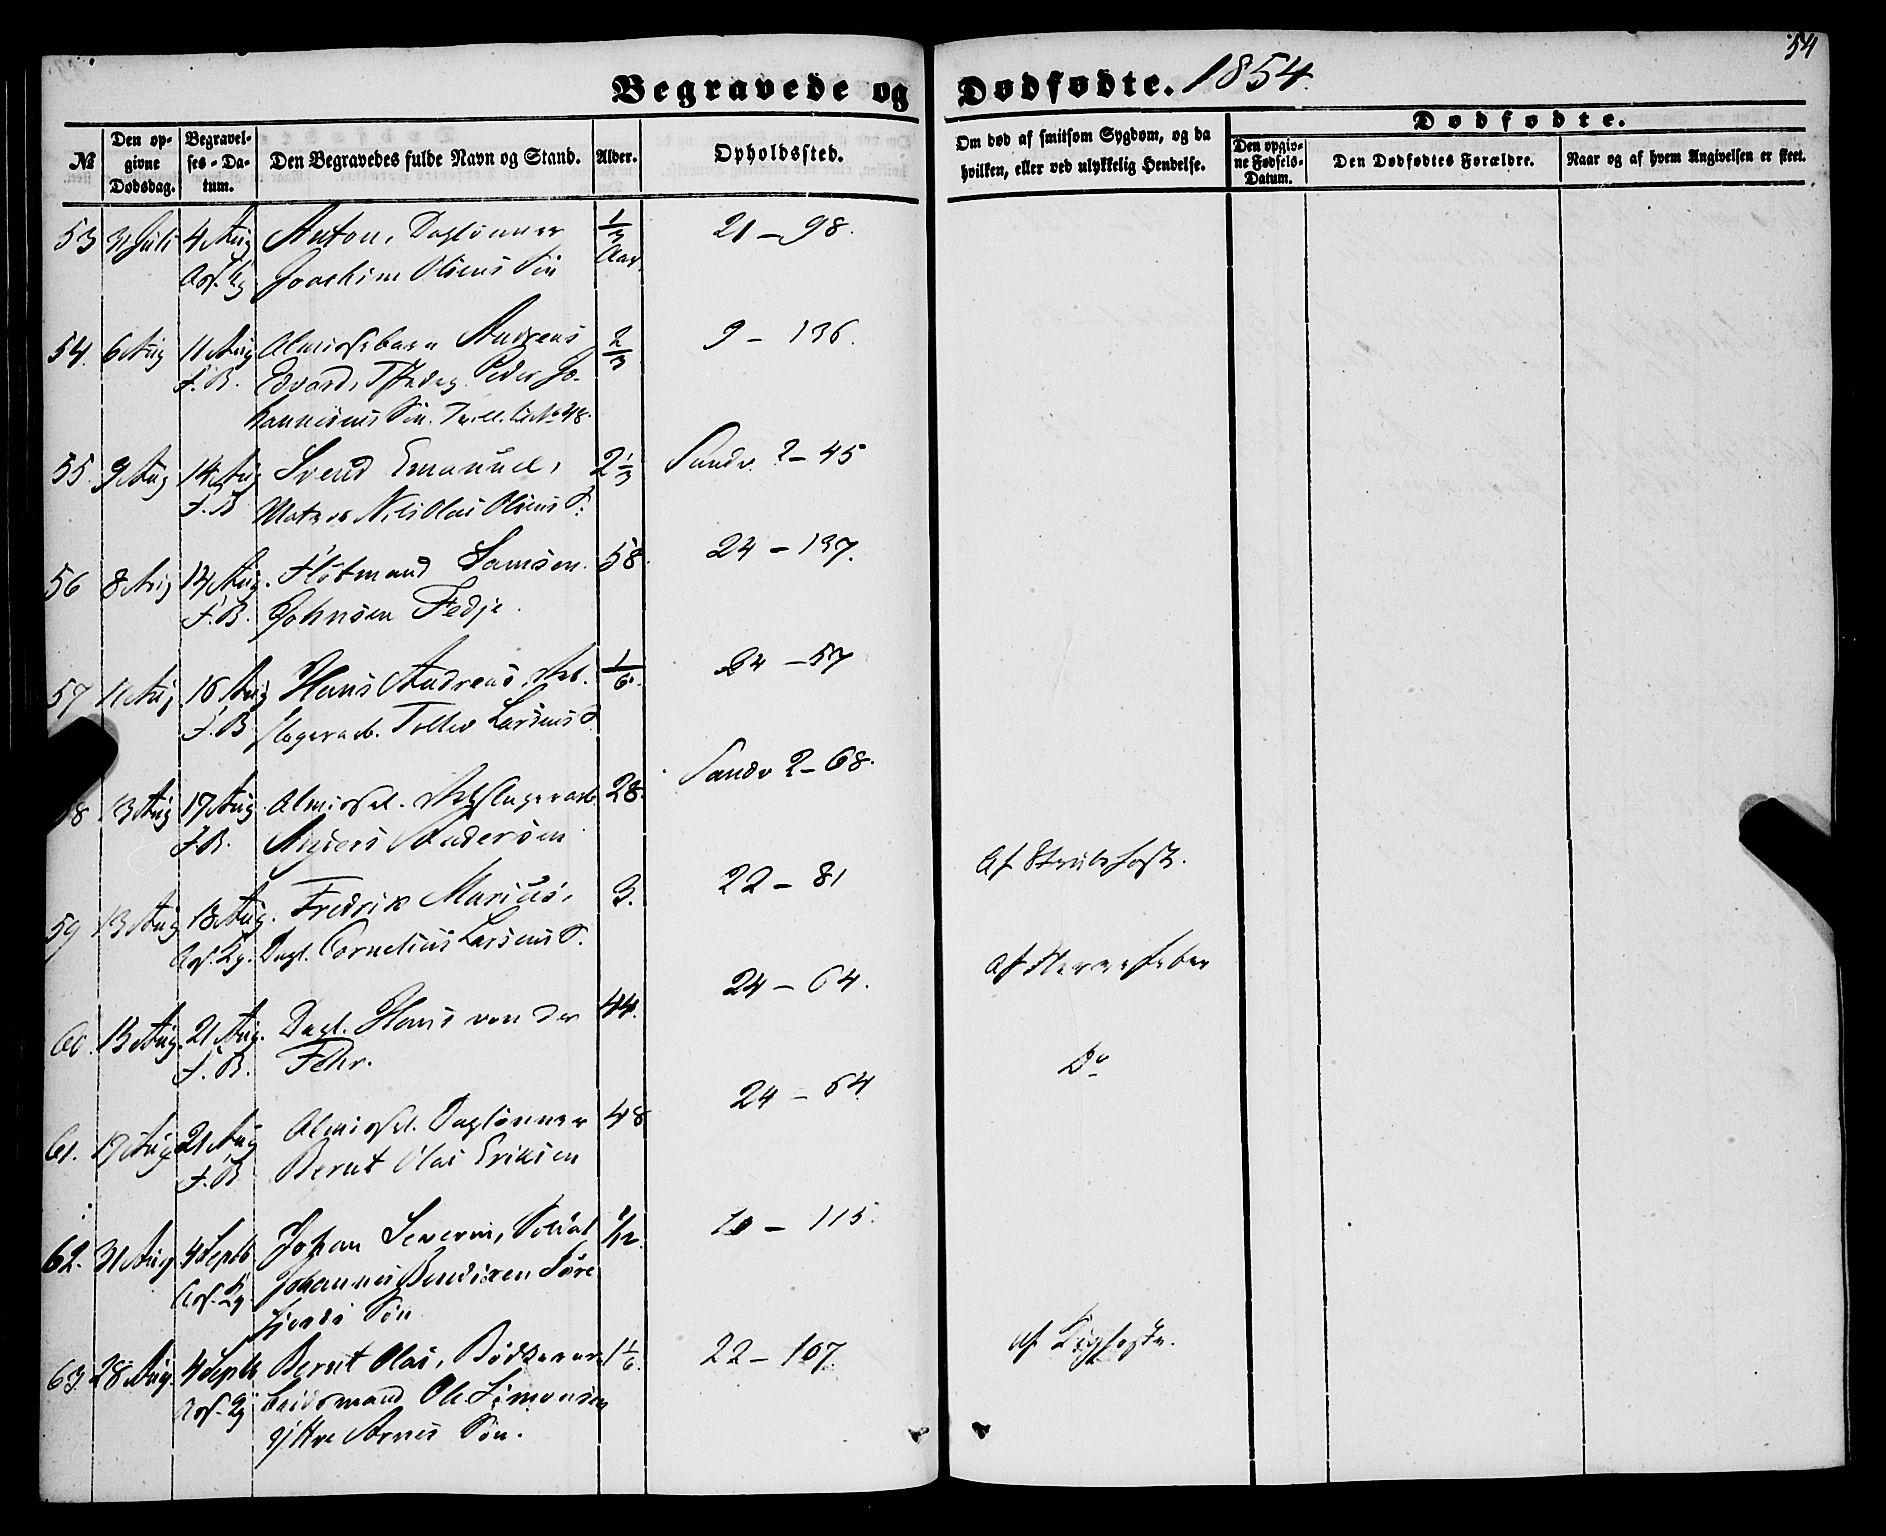 54
Begravede og Dødfødte. 1854.
№
Den op-
givne
Dødsdag.
Begravel-
ses-Da-
tum.
Den Begravedes fulde Navn og Stand.
Alder.
Opholdssted.
Om død af smitsom Sygdom, og da
hvilken, eller ved ulykkelig Hendelse.
Dødfødte.
Den opgiv-
ne Fødsels-
Datum.
Den Dødfødtes Forældre.
Naar og af hvem Angivelsen er skeet.
53 31 Juli 4 Aug Anton, Daglønner 1/3 Aar 21-98.
Joachim Olsens Søn
54. 6 Aug 11 Aug Almissebarn Andreas 2/3 9-136.
F.B. Edvard, Peder Jo-
hannesens Søn. No 48.
55. 9 Aug 14 Aug Svend Emanuel, 2 1/3 Sandv. 2-45
F.B. Matros Nils Olai Olsens S.
56 8 Aug Aug. Flötmand Samson 58. 24-137.
F.B. Johnsen Fedje.
57 11 Aug 16 Aug Hans Andreas, 1/6. 24-57
F.B. Tollev Larsens S.
13 Aug 17 Aug Almissel. 28. Sandv 2-68.
F.B. Andersen
59 13 Aug 18 Aug. Fredrik Marius, 3. 22-81 Af Strubehoste.
Dagl. Cornelius Larsens S.
60. 13 Aug. 21 Aug. Dagl. Hans von der 44. 24-64. af Nervefeber
F.B. Fehr.
61. 17 Aug 21 Aug Almissel. Daglønner 48 24-64 Do
F.B. Bernt Olai Eriksen
62. 31 Aug 4 Septb Johan Severin, Soldat 1/12. 10-115.
Johannes Bendixen Søre
Søn
63. 28 Aug. 4 Septb Bernt Olai, Bödkerar- 1 1/6. 22-107. af Kighoste.
beidsmand Ole Simonsen
Ytre Arnes Søn.